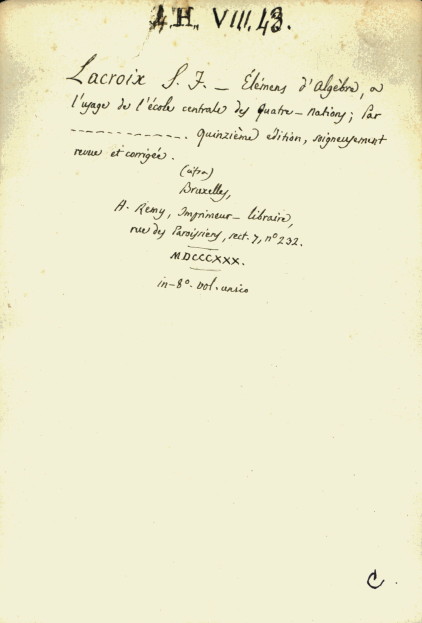 4.H. VIII.43.
Lacroix S. F. — Élémens d'Algèbre, a
l'usage de l'école centrale des Quatre-Nations; Par
-------------. Quinzième edition, soigneusement
revue et corrigée.
Bruxelles,
A. Remy, Imprimeur-libraire,
rue des Paroissiens, sect. 7, n° 232.
MDCCCXXX.
in-8° vol. unico
C.